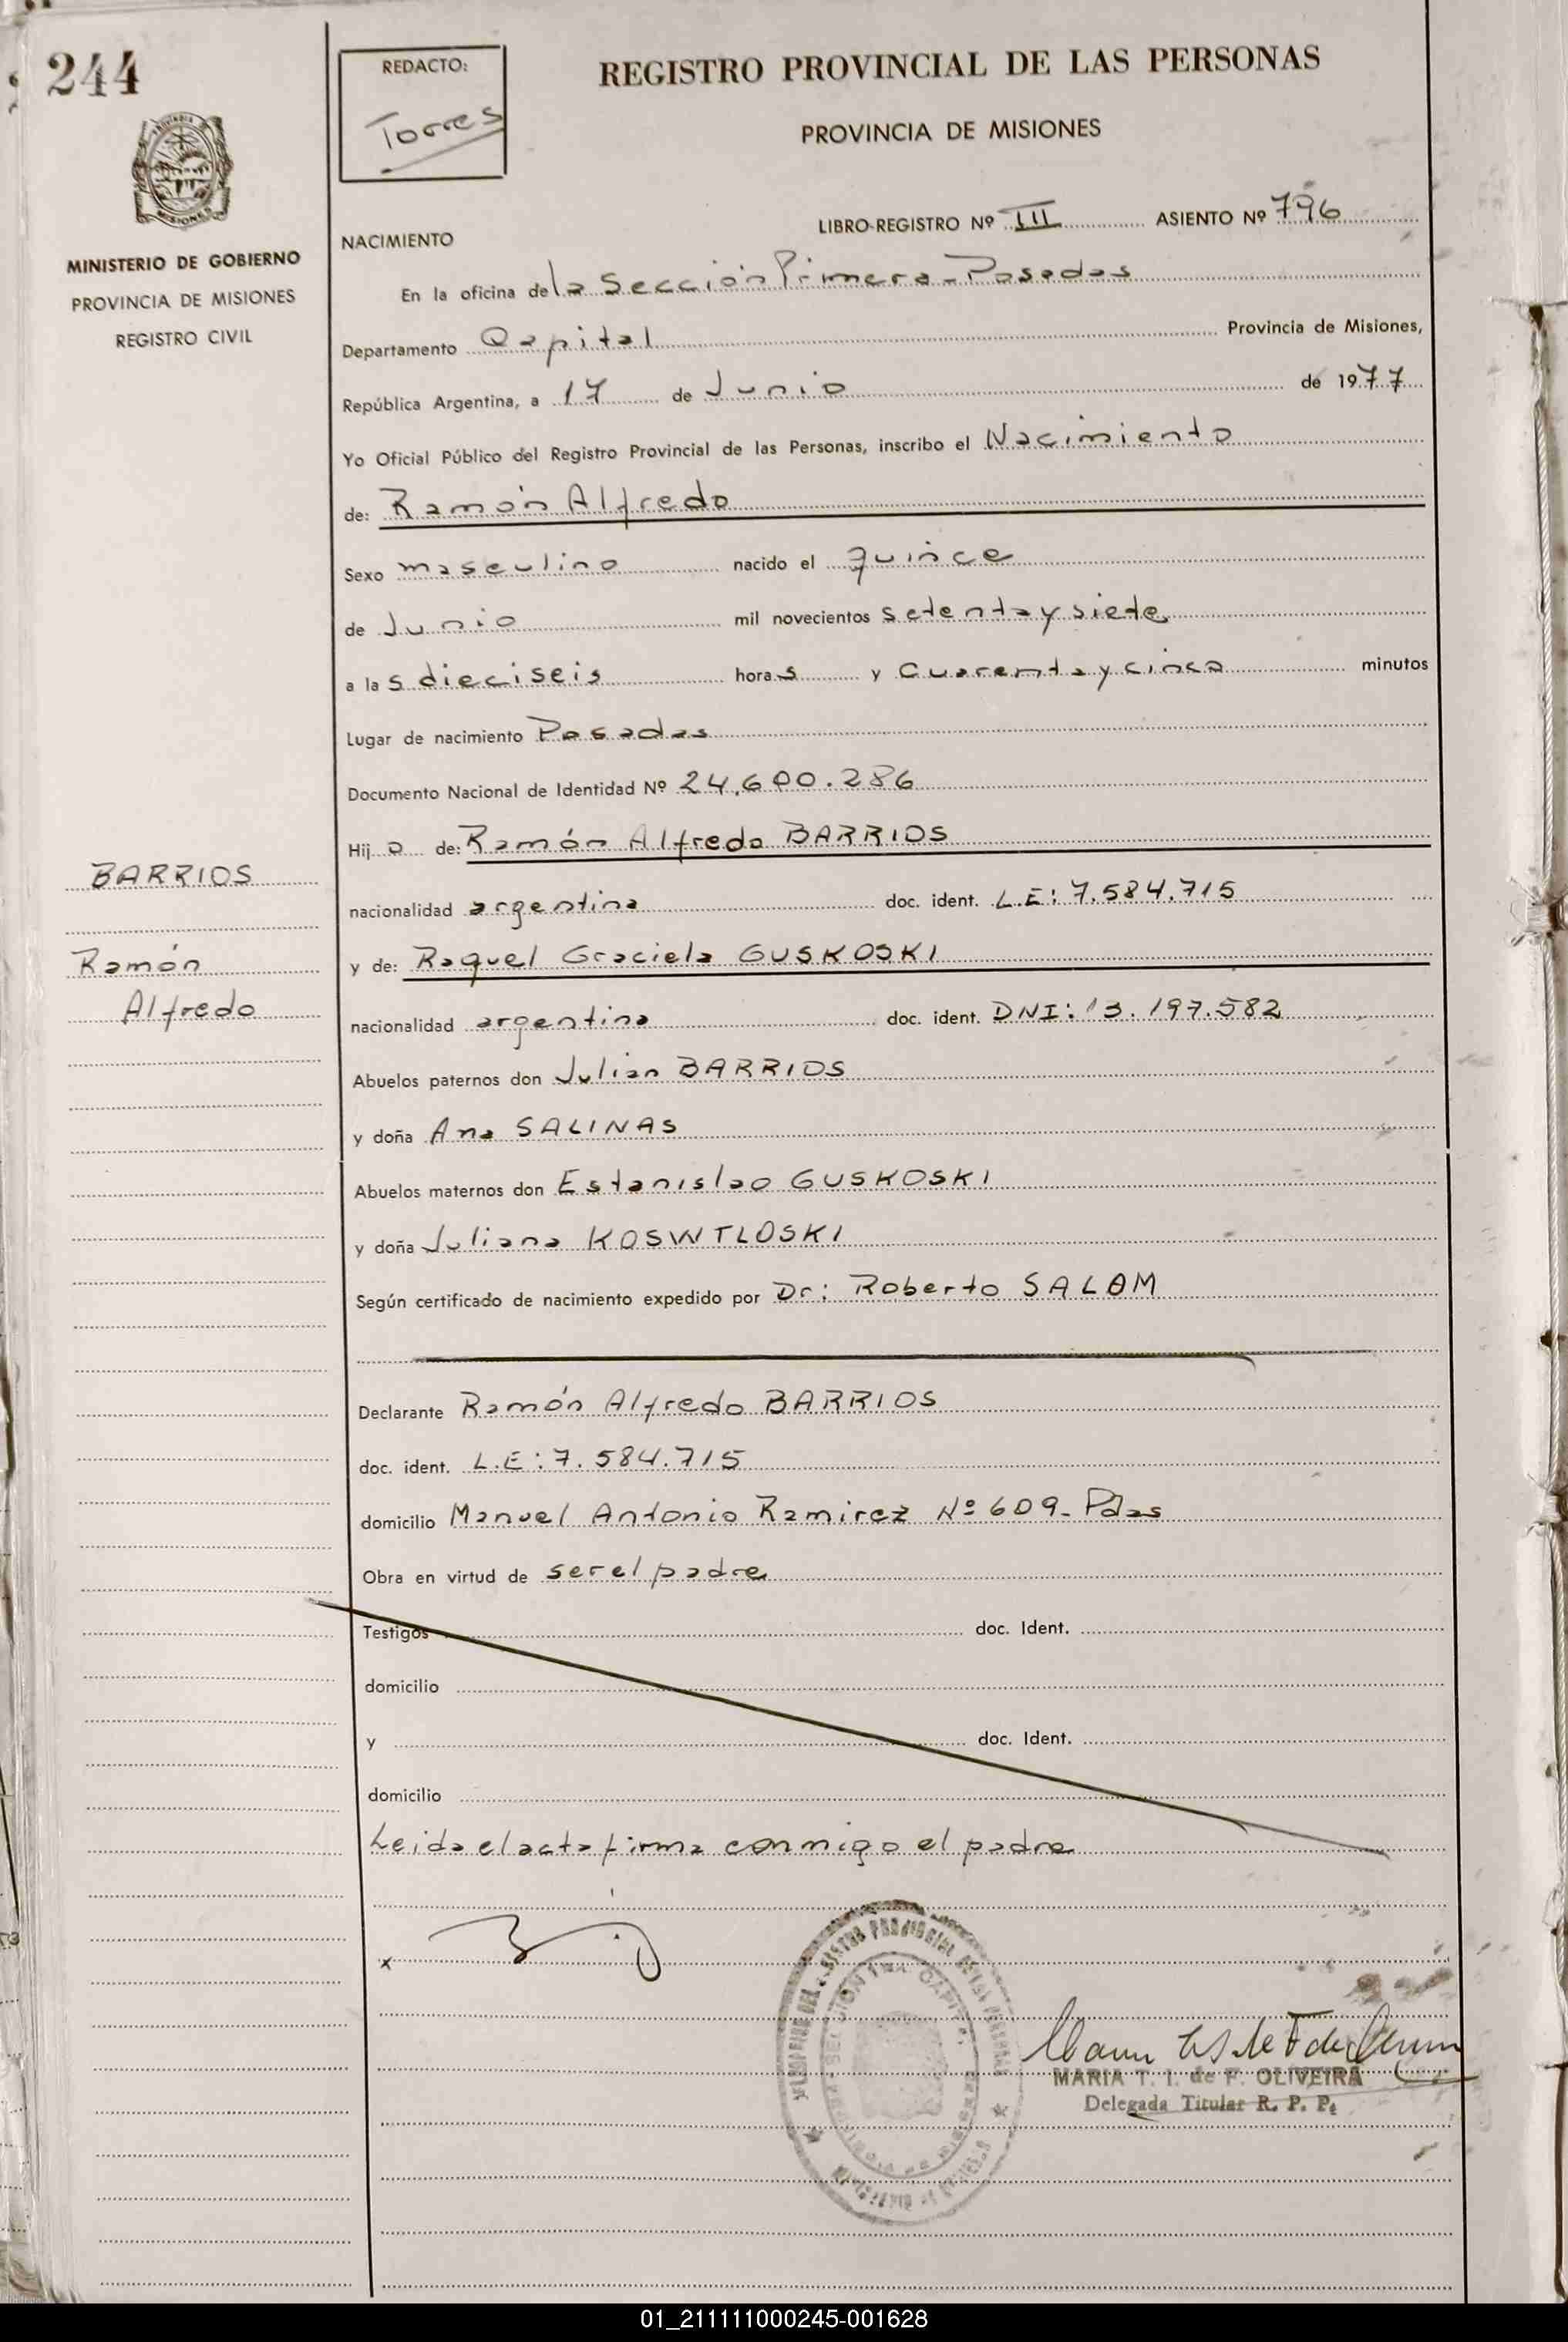 244
REDACTO:
Torres
REGISTRO PROVINCIAL DE LAS PERSONAS
PROVINCIA DE MISIONES
MINISTERIO DE GOBIERNO
PROVINCIA DE MISIONES
REGISTRO CIVIL
LIBRO-REGISTRO Nº III ASIENTO Nº 796
NACIMIENTO
En la oficina de la Sección Primera - Posadas
Departamento Capital Provincia de Misiones,
República Argentina, a 17 de Junio de 1977
Yo Oficial Público del Registro Provincial de las Personas, inscribo el Nacimiento
de: Ramón Alfredo
Sexo masculino nacido el quince
de Junio mil novecientos setenta y siete
a las dieciseis horas y cuarenta y cinco minutos
Lugar de nacimiento Posadas
Documento Nacional de Identidad Nº 24.600.286
Hijo de: Ramón Alfredo BARRIOS
BARRIOS
nacionalidad argentina doc. ident. L.E: 7.584.715
Ramón
y de: Raquel Graciela GUSKOSKI
Alfredo
nacionalidad argentina doc. ident. DNI: 13.197.582
Abuelos paternos don Julian BARRIOS
y doña Ana SALINAS
Abuelos maternos don Estanislao GUSKOSKI
y doña Juliana KOSWTLOSKI
Según certificado de nacimiento expedido por Dr: Roberto SALOM
Declarante Ramón Alfredo BARRIOS
doc. ident. L.E: 7.584.715
domicilio Manuel Antonio Ramirez Nº 609 - Pdas
Obra en virtud de ser el padre
Testigos doc. Ident.
domicilio
y doc. Ident.
domicilio
Leida el acta firma conmigo el padre
x
MARIA T. I. de F. OLIVEIRA
Delegada Titular R. P. P.
01_211111000245-001628